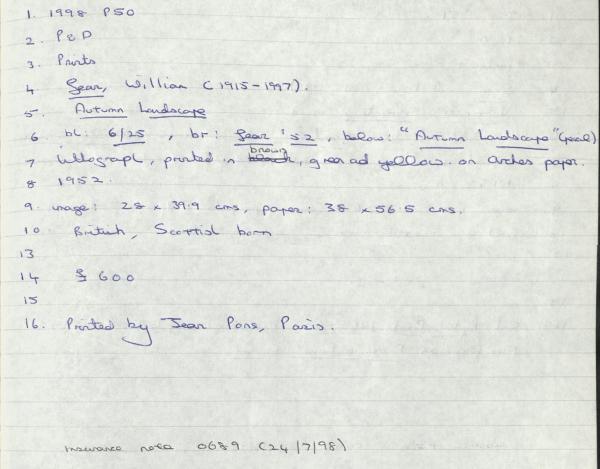 1. 1998 P50
2. P&D
3. Prints
4 Gear, William (1915-1997).
5. Autumn Landscape
6 bl: 6/25, br: Gear '52, below: "Autumn Landscape" (pencil)
7 lithograph, printed in black brown, green and yellow on Arches paper.
8 1952.
9. image: 28 x 39.9 cms, paper: 38 x 56.5 cms.
10 British, Scottish born
13
14 £600
15
16. Printed by Jean Pons, Paris.
Insurance note 0689 (24/7/98)